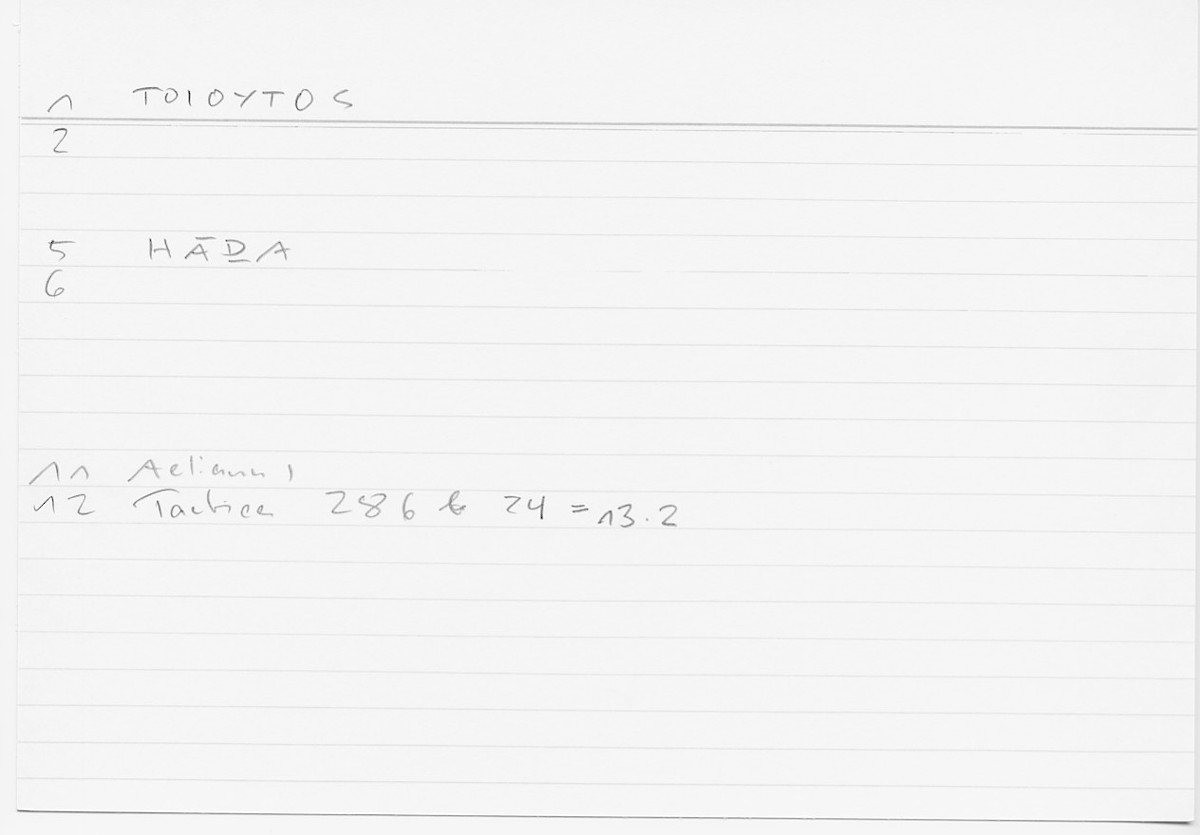 1 ΤΟΙΟΥΤΟS
2
5 HĀḎA
6
11 Aelianus,
12 Tactica 286 b 24 = 13.2